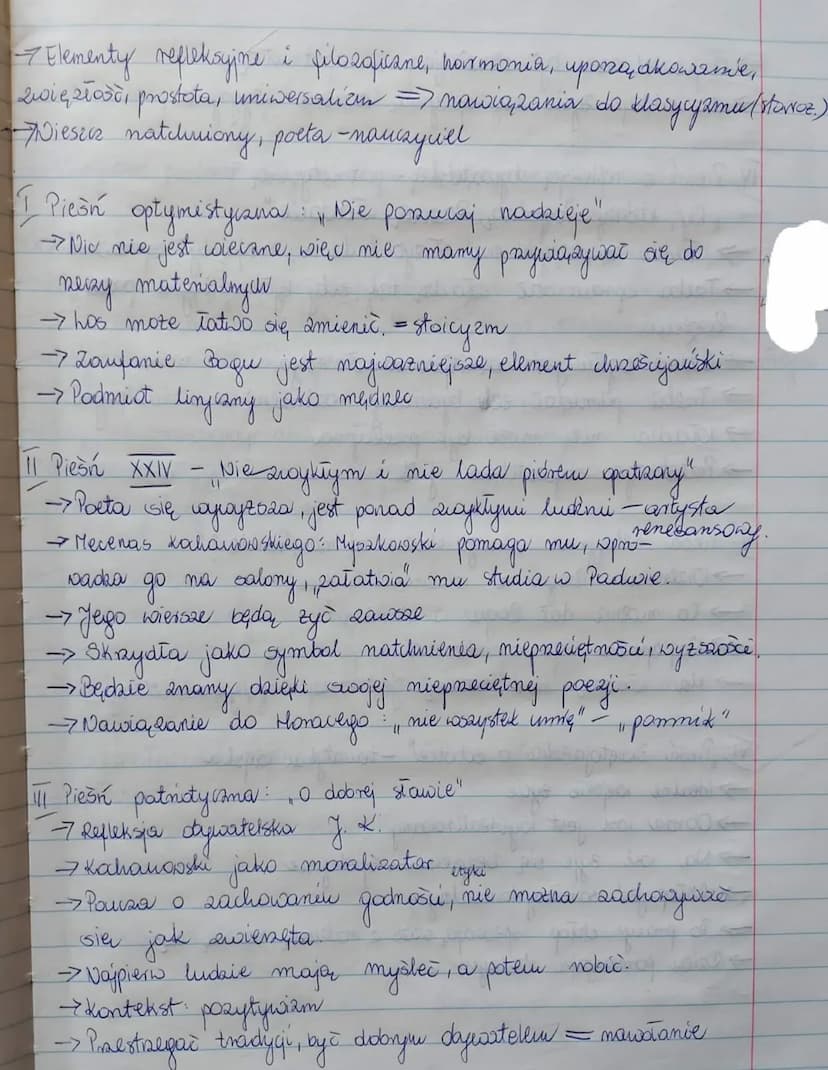 → Elementy refleksyjne i filozoficzne, harmonia, uporządkowanie,
zwięzłość, prostota, uniwersalizm => nawiązania do klasycyzmu (staroż.)
→ Wieszcz natchniony, poeta - nauczyciel
I Pieśń optymistyczna: „Nie porzucaj nadzieje"
→ Nic nie jest wieczne, więc nie mamy przywiązywać się do
rzeczy materialnych
→ Los może łatwo się zmienić. = stoicyzm
→ Zaufanie Bogu jest najważniejsze, element chrześcijański
→ Podmiot liryczny jako mędrzec
II Pieśń XXIV - „Niezwykłym i nie lada piórem opatrzony"
→ Poeta się wywyższa, jest ponad zwykłymi ludźmi - artysta
renesansowy.
→ Mecenas Kochanowskiego: Myszkowski pomaga mu, wpro-
wadza go na salony, „załatwia" mu studia w Padwie.
→ Jego wiersze będą żyć zawsze
→ Skrzydła jako symbol natchnienia, nieprzeciętności, wyższości.
→ Będzie znany dzięki swojej nieprzeciętnej poezji.
→ Nawiązanie do Horacego: „nie wszystek umrę" - „pomnik"
III Pieśń patriotyczna: „O dobrej sławie"
→ Refleksja obywatelska J. K.
→ Kochanowski jako moralizator
etyki
→ Poucza o zachowaniu godności, nie można zachowywać
się jak zwierzęta.
→ Najpierw ludzie mają myśleć, a potem robić.
→ Kontekst: pozytywizm
→ Przestrzegać tradycji, być dobrym obywatelem = nawołanie